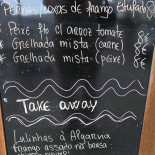 Pernas/coxas de frango estufado
* Peixe fº c/ arroz tomate 8€
* Grelhada mista (carne) 8€
* Grelhada mista (peixe) 8€
Take away
Lulinhas à Algarvia
Frango assado na brasa